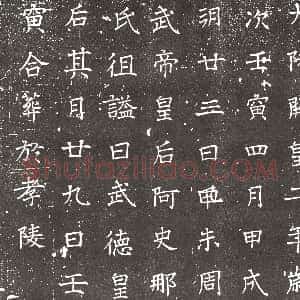 大隋開皇二年歲
次壬寅四月甲戌
朔廿三日甲未周
武帝皇后阿史那
氏徂謚曰武德皇
后其月廿九日壬
寅合葬於孝陵
Shufaziliao.com